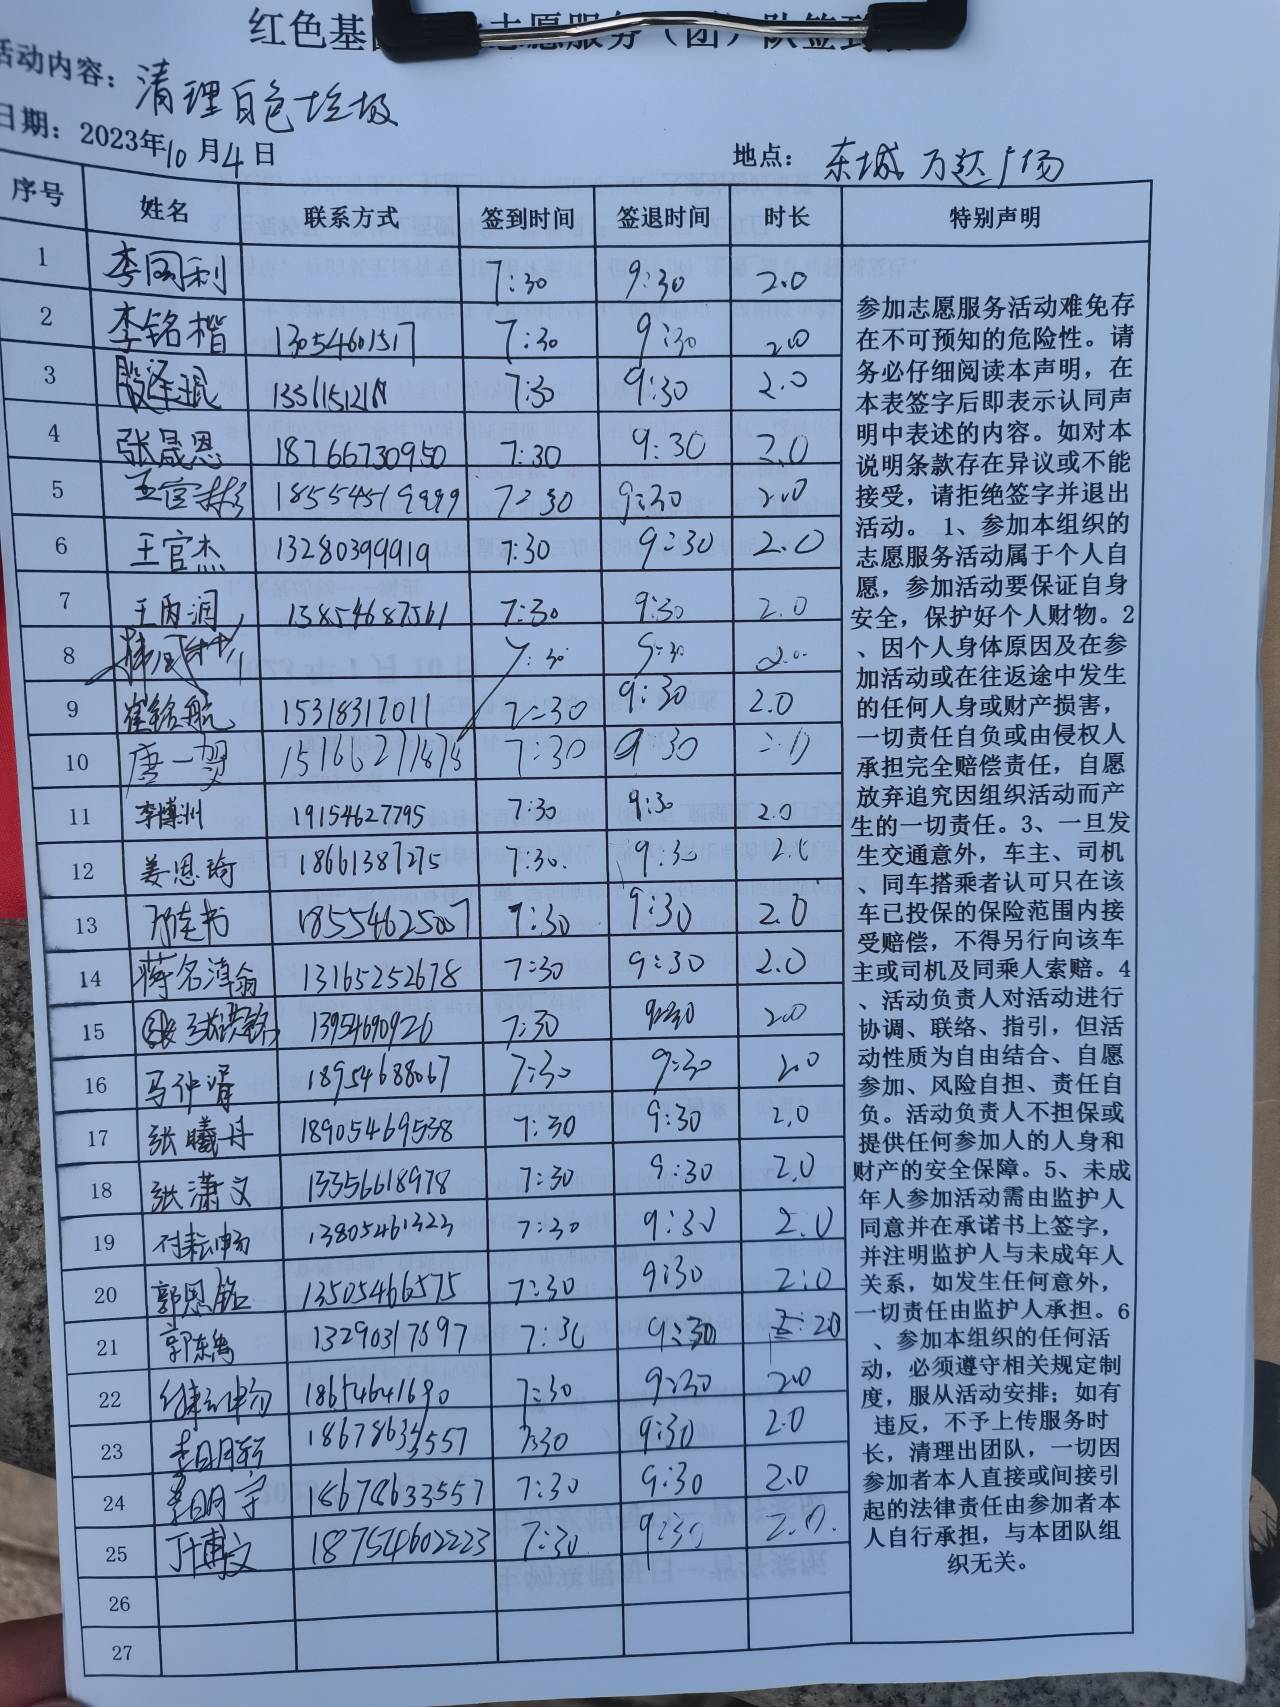 红色基 志愿服务（团）队签到
活动内容：清理白色垃圾
日期：2023年10月4日
地点：东城万达广场
序号 姓名 联系方式 签到时间 签退时间 时长 特别声明
1 李国利 7:30 9:30 2.0
2 李铭楷 13054601517 7:30 9:30 2.0
3 7:30 9:30 2.0
4 张晟恩 18766730950 7:30 9:30 2.0
5 王官彬 18554519999 7:30 9:30 2.0
6 王官杰 13280399919 7:30 9:30 2.0
7 王丙润 13854687561 7:30 9:30 2.0
8 7:30 9:30 2.0
9 崔铭航 15318317011 7:30 9:30 2.0
10 唐一 7:30 9:30 2.0
11 李博洲 19154627795 7:30 9:30 2.0
12 姜恩琦 18661387275 7:30 9:30 2.0
13 18554625007 7:30 9:30 2.0
14 蒋名淳翕 13165252678 7:30 9:30 2.0
15 7:30 9:30 2.0
16 马仲 18954688067 7:30 9:30 2.0
17 张曦丹 18905469538 7:30 9:30 2.0
18 张潇文 13356618978 7:30 9:30 2.0
19 付耘畅 13805461323 7:30 9:30 2.0
20 郭恩铭 13505466575 7:30 9:30 2:0
21 郭东 13290317697 7:30 9:30 2:20
22 18654641690 7:30 9:30 2.0
23 李明轩 7:30 9:30 2.0
24 李明宇 18678633557 7:30 9:30 2.0
25 丁博文 187540602223 7:30 9:30 2.0
26
27
参加志愿服务活动难免存
在不可预知的危险性。请
务必仔细阅读本声明，在
本表签字后即表示认同声
明中表述的内容。如对本
说明条款存在异议或不能
接受，请拒绝签字并退出
活动。1、参加本组织的
志愿服务活动属于个人自
愿，参加活动要保证自身
安全，保护好个人财物。2
、因个人身体原因及在参
加活动或在往返途中发生
的任何人身或财产损害，
一切责任自负或由侵权人
承担完全赔偿责任，自愿
放弃追究因组织活动而产
生的一切责任。3、一旦发
生交通意外，车主、司机
、同车搭乘者认可只在该
车已投保的保险范围内接
受赔偿，不得另行向该车
主或司机及同乘人索赔。4
、活动负责人对活动进行
协调、联络、指引，但活
动性质为自由结合、自愿
参加、风险自担、责任自
负。活动负责人不担保或
提供任何参加人的人身和
财产的安全保障。5、未成
年人参加活动需由监护人
同意并在承诺书上签字，
并注明监护人与未成年人
关系，如发生任何意外，
一切责任由监护人承担。6
、参加本组织的任何活
动，必须遵守相关规定制
度，服从活动安排；如有
违反，不予上传服务时
长，清理出团队，一切因
参加者本人直接或间接引
起的法律责任由参加者本
人自行承担，与本团队组
织无关。